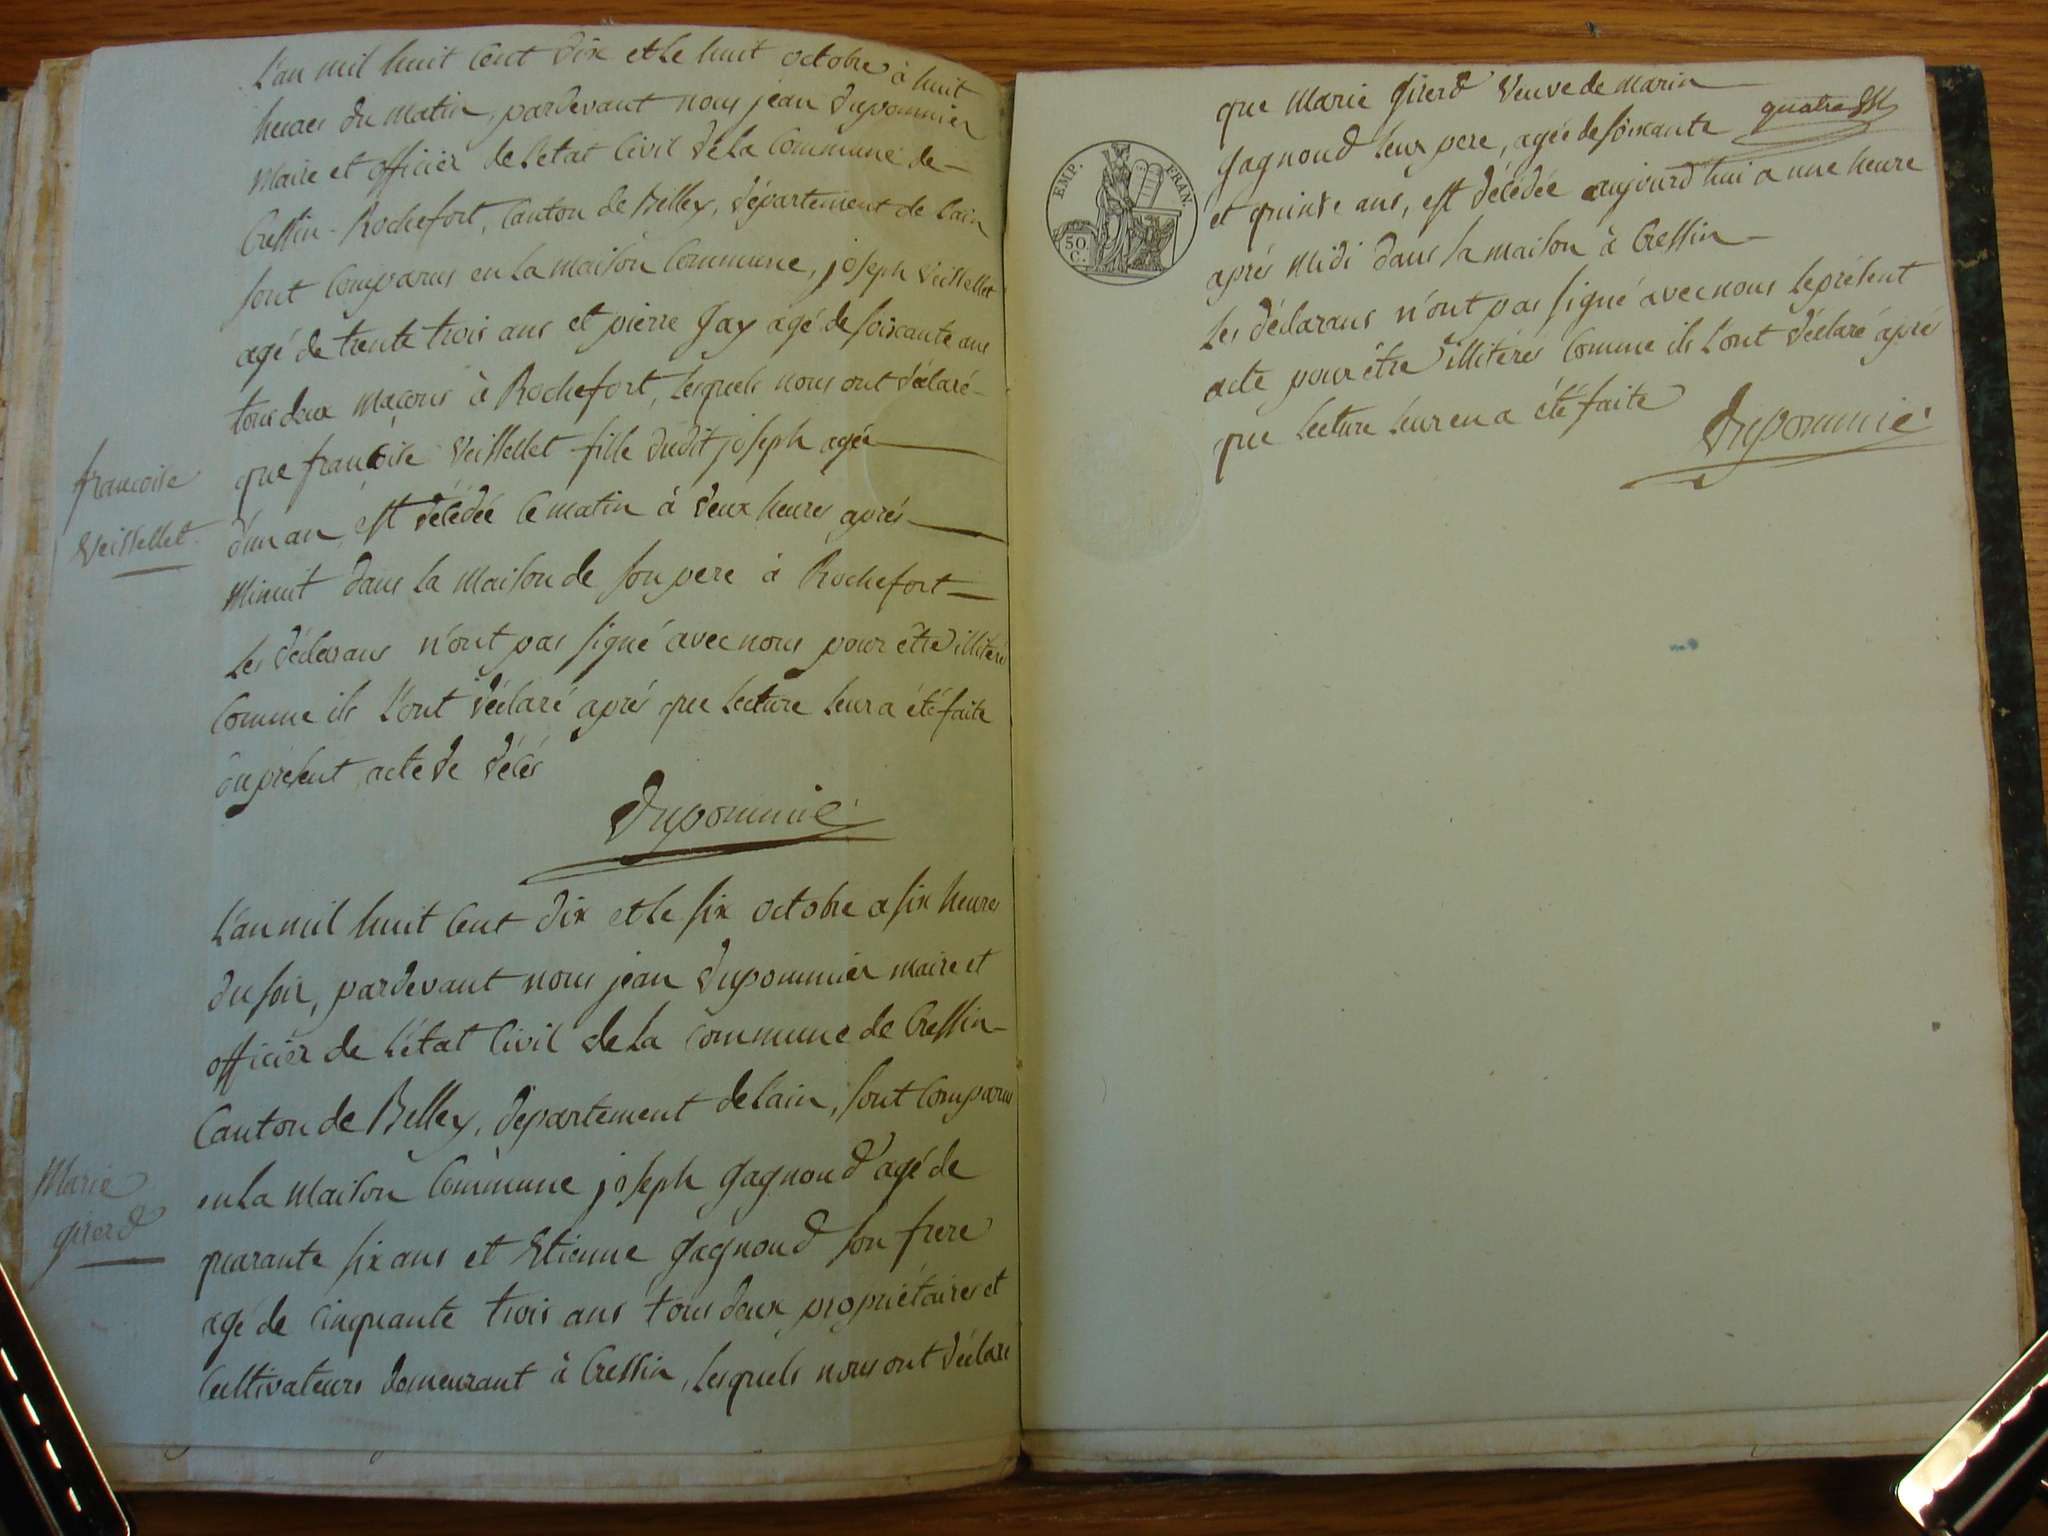 L'an mil huit Cent dix et le huit octobre à huit
heures du matin, pardevant nous jean Dupommier
Maire et officier de l'etat Civil de la Commune de
Cressin-Rochefort, Canton de Belley, département de l'ain
sont Comparus en la maison Commune, joseph Veissellet
agé de trente trois ans et pierre Gay agé de soixante ans
tous deux maçons à Rochefort, lesquels nous ont déclaré
que françoise Veissellet fille dudit joseph agée
françoise
Veissellet
d'un an, est décédée ce matin à deux heures après
Minuit dans la Maison de son pere à Rochefort
les déclarans n'ont pas signé avec nous pour être illitérés
Comme ils l'ont déclaré après que lecture leur a été faite
du présent acte de décés
Dupommié
L'an mil huit Cent dix et le six octobre a six heures
du soir, pardevant nous jean Dupommier maire et
officier de l'état Civil de la Commune de Cressin
Canton de Belley, département de l'ain, sont Comparus
en la Maison Commune joseph gagnoud agé de
Marie
girerd
quarante six ans et Etienne gagnoud son frere
agé de cinquante trois ans tous deux propriétaires et
Cultivateurs demeurant à Cressin, lesquels nous ont déclaré
que Marie girerd Veuve de Marin
gagnoud leur pere, agée de soixante
quatre
EMP. FRAN.
50 C.
et quinze ans, est décédée aujourd'hui a une heure
après Midi dans sa maison à Cressin
Les déclarans n'ont pas signé avec nous le présent
acte pour être illitérés Comme ils l'ont déclaré après
que lecture leur en a été faite
Dupommié